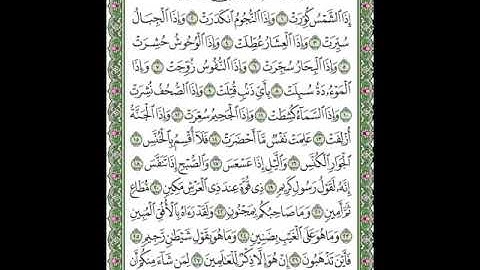 إِذَا ٱلشَّمْسُ كُوِّرَتْ ١ وَإِذَا ٱلنُّجُومُ ٱنكَدَرَتْ ٢ وَإِذَا ٱلْجِبَالُ
سُيِّرَتْ ٣ وَإِذَا ٱلْعِشَارُ عُطِّلَتْ ٤ وَإِذَا ٱلْوُحُوشُ حُشِرَتْ
٥ وَإِذَا ٱلْبِحَارُ سُجِّرَتْ ٦ وَإِذَا ٱلنُّفُوسُ زُوِّجَتْ ٧ وَإِذَا
ٱلْمَوْءُۥدَةُ سُئِلَتْ ٨ بِأَىِّ ذَنۢبٍ قُتِلَتْ ٩ وَإِذَا ٱلصُّحُفُ نُشِرَتْ
١٠ وَإِذَا ٱلسَّمَآءُ كُشِطَتْ ١١ وَإِذَا ٱلْجَحِيمُ سُعِّرَتْ ١٢ وَإِذَا ٱلْجَنَّةُ
أُزْلِفَتْ ١٣ عَلِمَتْ نَفْسٌ مَّآ أَحْضَرَتْ ١٤ فَلَآ أُقْسِمُ بِٱلْخُنَّسِ
١٥ ٱلْجَوَارِ ٱلْكُنَّسِ ١٦ وَٱلَّيْلِ إِذَا عَسْعَسَ ١٧ وَٱلصُّبْحِ إِذَا تَنَفَّسَ
١٨ إِنَّهُۥ لَقَوْلُ رَسُولٍ كَرِيمٍ ١٩ ذِى قُوَّةٍ عِندَ ذِى ٱلْعَرْشِ مَكِينٍ ٢٠ مُّطَاعٍ
ثَمَّ أَمِينٍ ٢١ وَمَا صَاحِبُكُم بِمَجْنُونٍ ٢٢ وَلَقَدْ رَءَاهُ بِٱلْأُفُقِ ٱلْمُبِينِ
٢٣ وَمَا هُوَ عَلَى ٱلْغَيْبِ بِضَنِينٍ ٢٤ وَمَا هُوَ بِقَوْلِ شَيْطَٰنٍ رَّجِيمٍ
٢٥ فَأَيْنَ تَذْهَبُونَ ٢٦ إِنْ هُوَ إِلَّا ذِكْرٌ لِّلْعَٰلَمِينَ ٢٧ لِمَن شَآءَ مِنكُمْ أَن